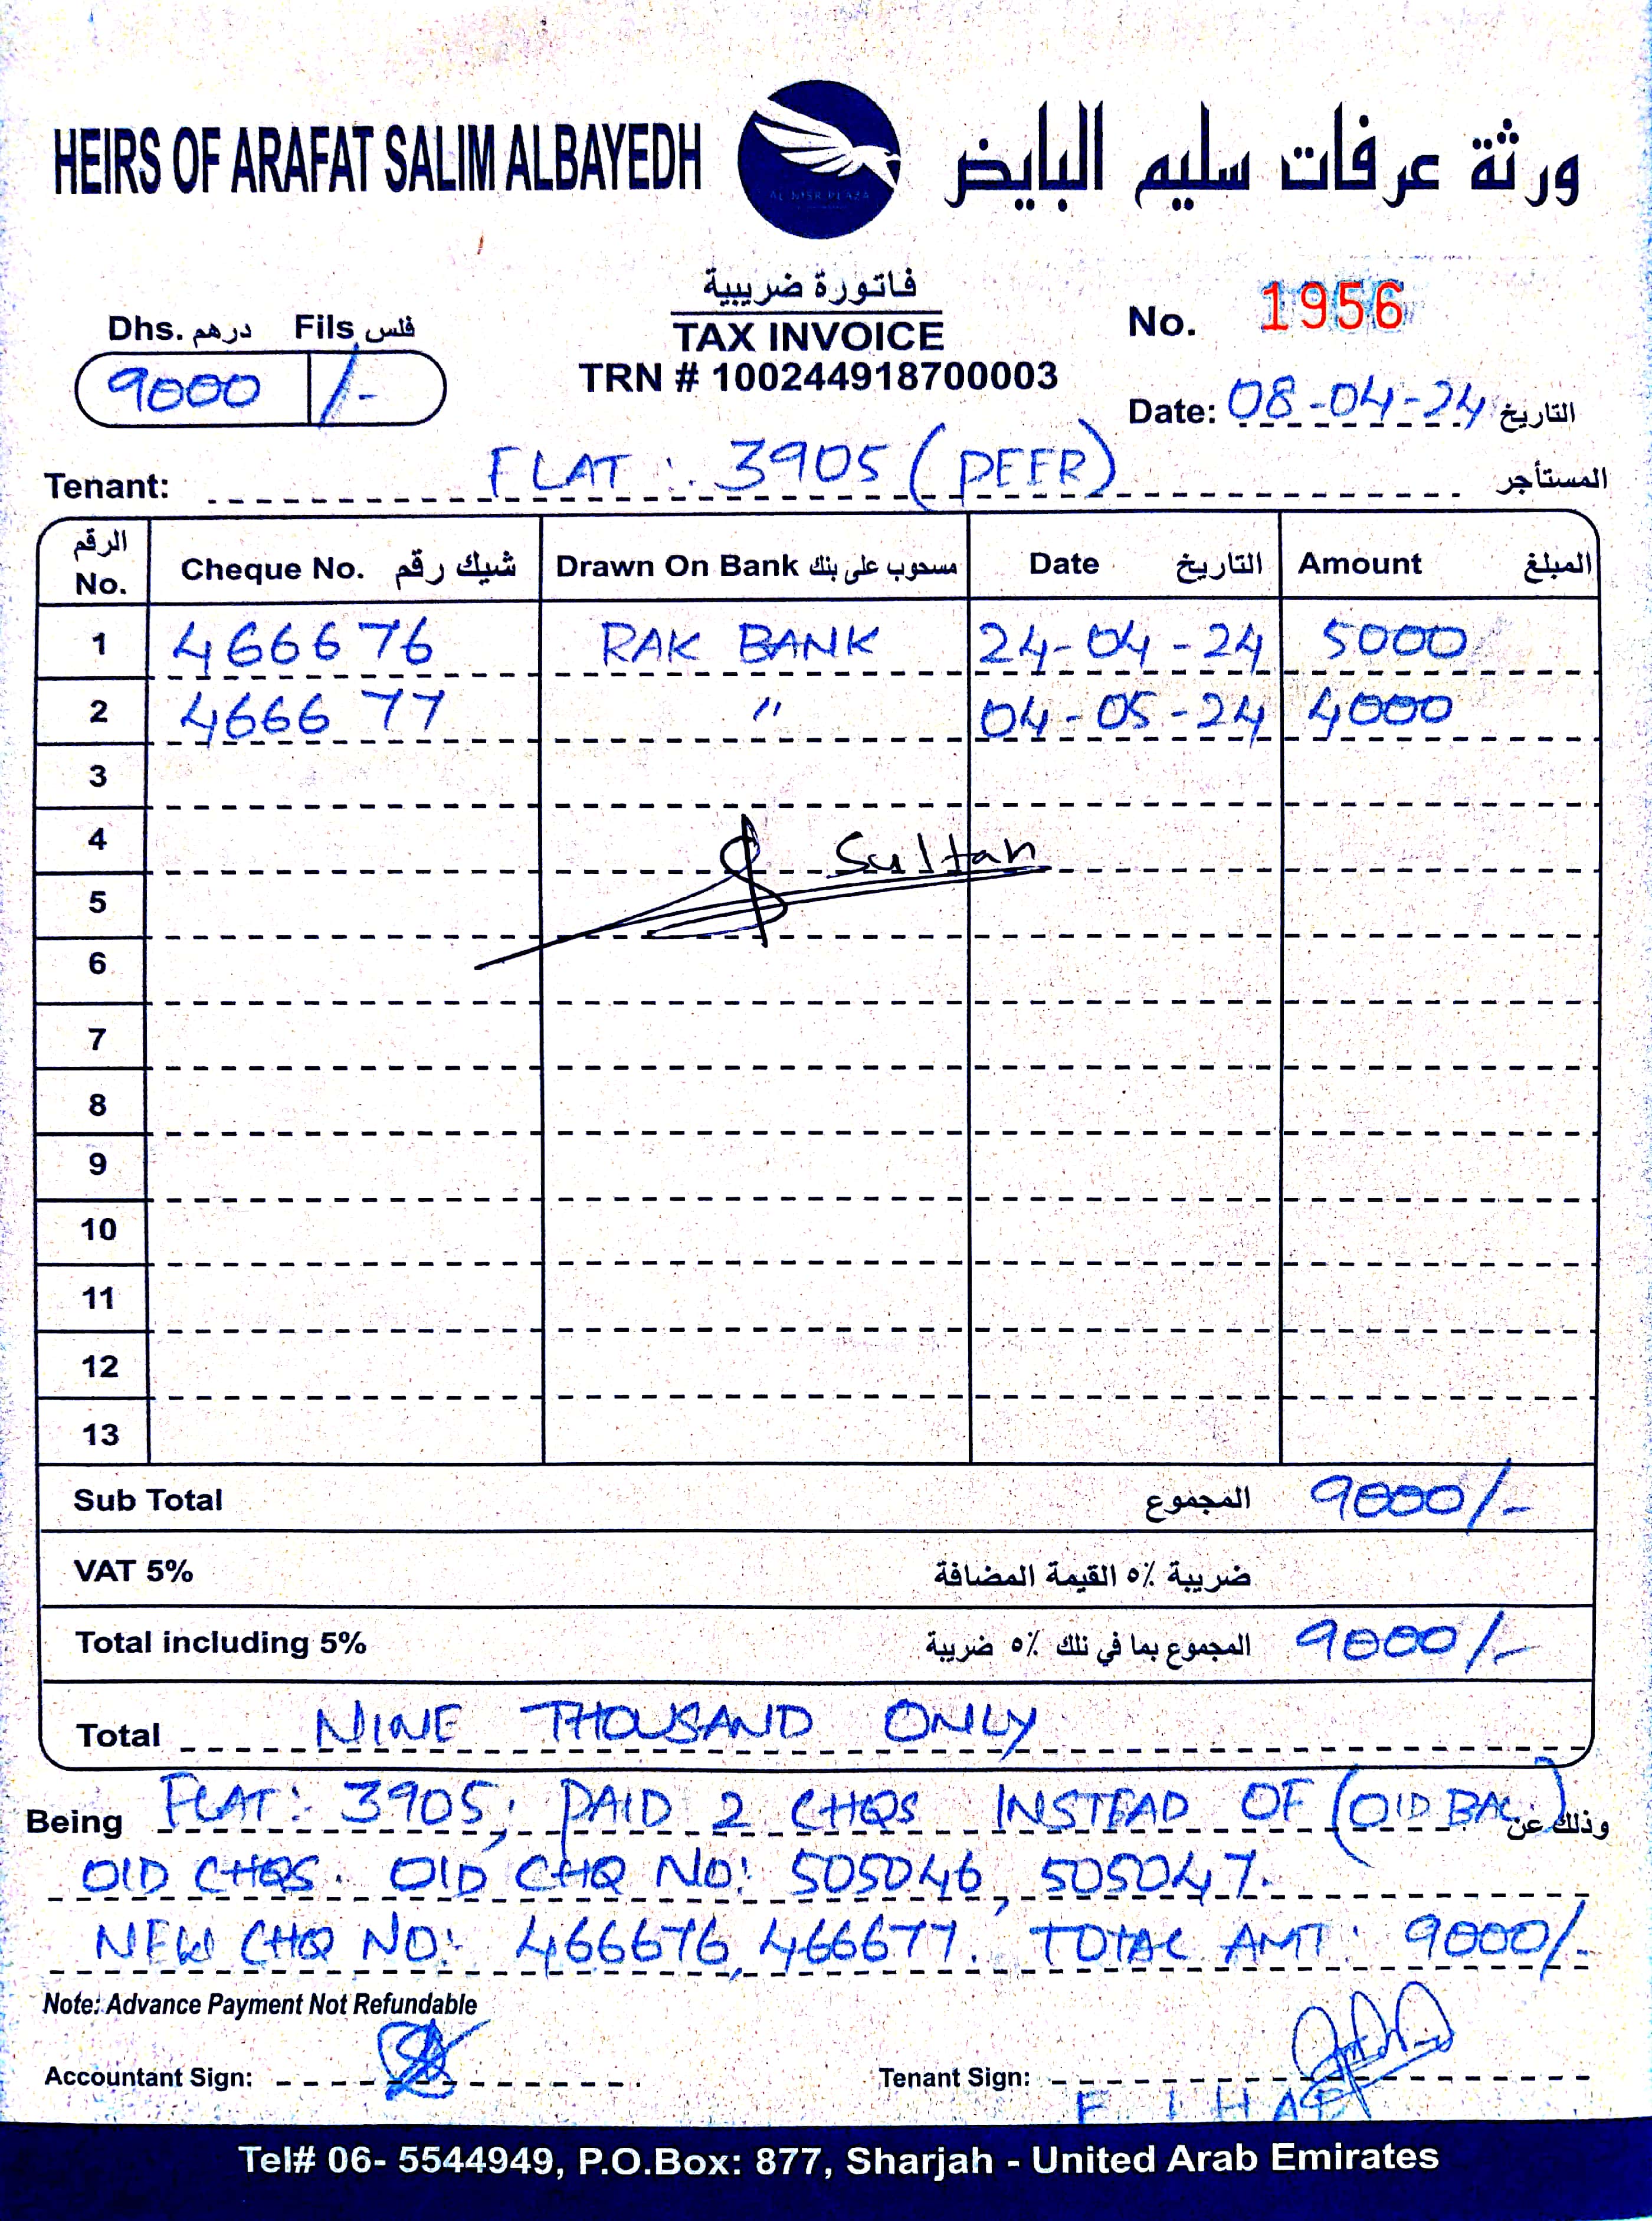 HEIRS OF ARAFAT SALIM ALBAYEDH
AL NISR PLAZA
ورثة عرفات سليم البايض
Dhs. درهم Fils فلس
9000 /-
فاتورة ضريبية
TAX INVOICE
TRN # 100244918700003
No. 1956
Date: 08-04-24 التاريخ
Tenant: FLAT : 3905 (PEER) المستأجر
الرقم No. Cheque No. شيك رقم Drawn On Bank مسحوب على بنك Date التاريخ Amount المبلغ
1 466676 RAK BANK 24-04-24 5000
2 466677 " 04-05-24 4000
3
4
Sultan
5
6
7
8
9
10
11
12
13
Sub Total المجموع 9000/-
VAT 5% ضريبة ٥٪ القيمة المضافة
Total including 5% المجموع بما في ذلك ٥٪ ضريبة 9000/-
Total NINE THOUSAND ONLY
Being FLAT: 3905; PAID 2 CHQS INSTEAD OF (OID BAL) وذلك عن
OID CHQS. OID CHQ NO: 505046, 505047.
NEW CHQ NO: 466676, 466677. TOTAL AMT: 9000/-
Note: Advance Payment Not Refundable
Accountant Sign: Tenant Sign:
Tel# 06- 5544949, P.O.Box: 877, Sharjah - United Arab Emirates